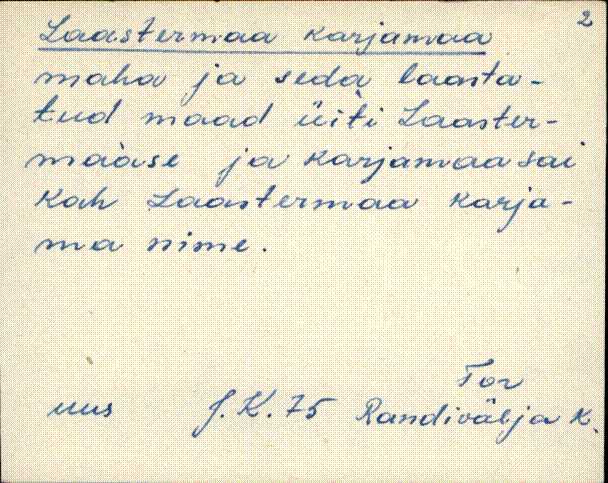 2
Laastermaa karjamaa
maha ja seda laasta-
tud maad üiti Laaster-
maase ja karjamaa sai
kah Laastermaa karja-
ma nime.
Tor
uus J.K. 75 Randivälja K.